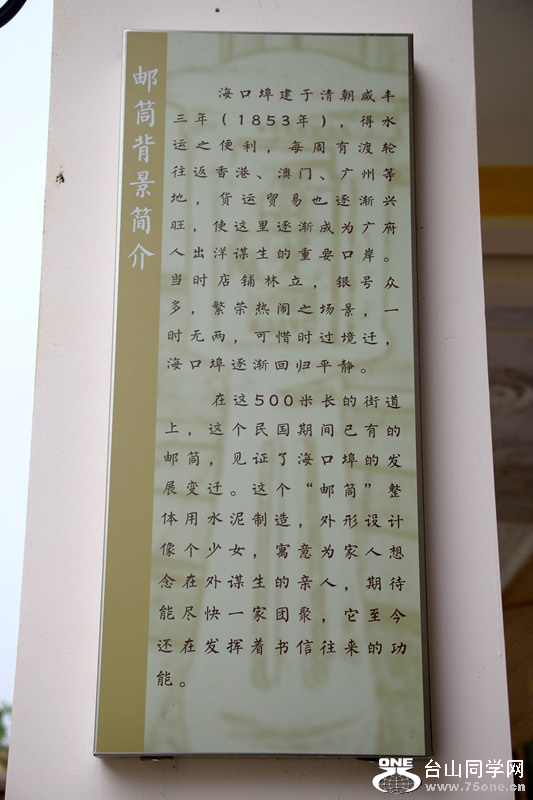 邮筒背景简介
海口埠建于清朝咸丰
三年(1853年)，得水
运之便利，每周有渡轮
往返香港、澳门、广州等
地，货运贸易也逐渐兴
旺，使这里逐渐成为广府
人出洋谋生的重要口岸。
当时店铺林立，银号众
多，繁荣热闹之场景，一
时无两，可惜时过境迁，
海口埠逐渐回归平静。
在这500米长的街道
上，这个民国期间已有的
邮筒，见证了海口埠的发
展变迁。这个“邮筒”整
体用水泥制造，外形设计
像个少女，寓意为家人想
念在外谋生的亲人，期待
能尽快一家团聚，它至今
还在发挥着书信往来的功
能。
ONE 台山同学网
www.75one.cn